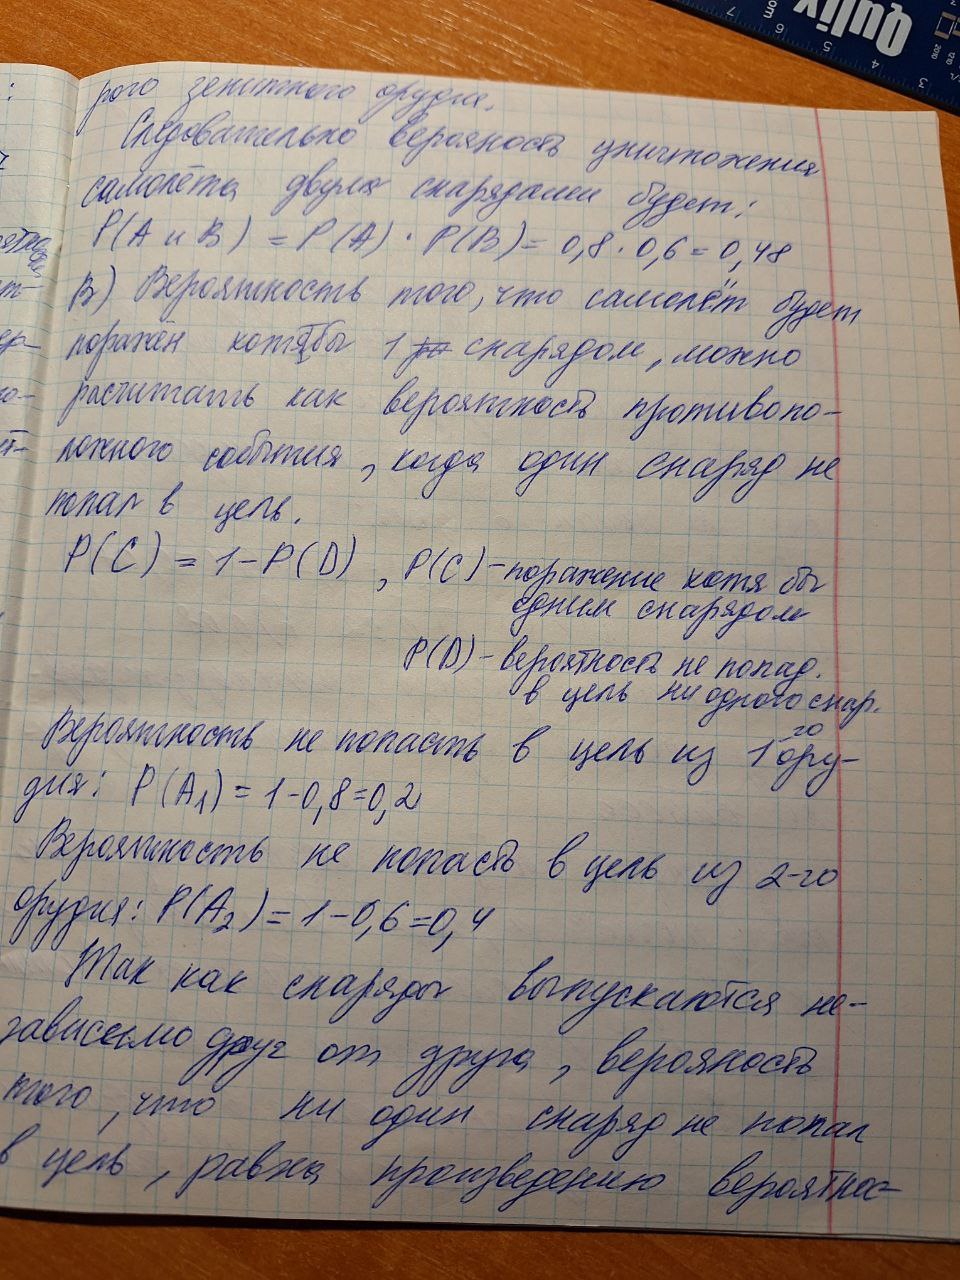 рого зенитного орудия.
Следовательно верояность уничтожения
самолёта двумя снарядами будет:
P(A и B) = P(A) · P(B) = 0,8 · 0,6 = 0,48
В) Вероятность того, что самолёт будет
поражён хотябы 1 снарядом, можно
расчитать как вероятность противопо-
ложного события, когда один снаряд не
попал в цель.
P(C) = 1 - P(D), P(C) - поражение хотя бы
одним снарядом
P(D) - вероятность не попад.
в цель ни одного снар.
Вероятность не попасть в цель из 1го ору-
дия: P(A₁) = 1 - 0,8 = 0,2
Вероятность не попасть в цель из 2-го
орудия: P(A₂) = 1 - 0,6 = 0,4
Так как снаряды выпускаются не-
зависемо друг от друга, верояность
того, что ни один снаряд не попал
в цель, равна произведению вероятнос-
Qulix
cm
7
6
5
4
3